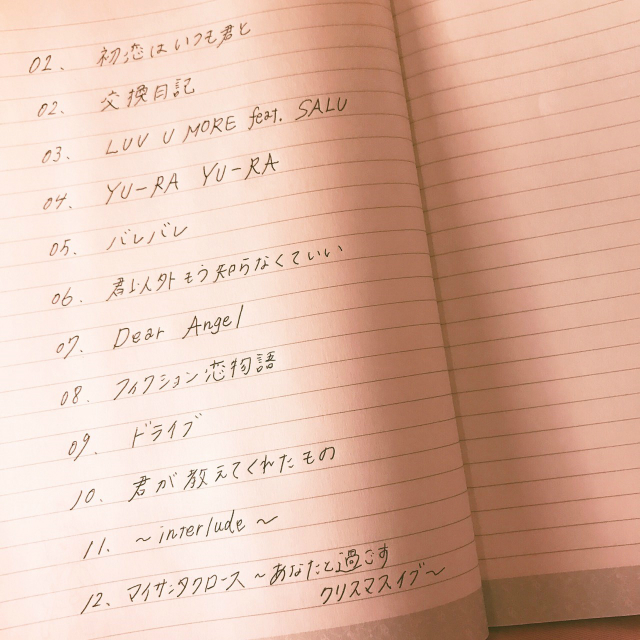 01. 初恋はいつも君と
02. 交換日記
03. LUV U MORE feat. SALU
04. YU-RA YU-RA
05. バレバレ
06. 君以外もう知らなくていい
07. Dear Angel
08. フィクション恋物語
09. ドライブ
10. 君が教えてくれたもの
11. ～interlude～
12. マイサンタクロース～あなたと過ごす
クリスマスイブ～